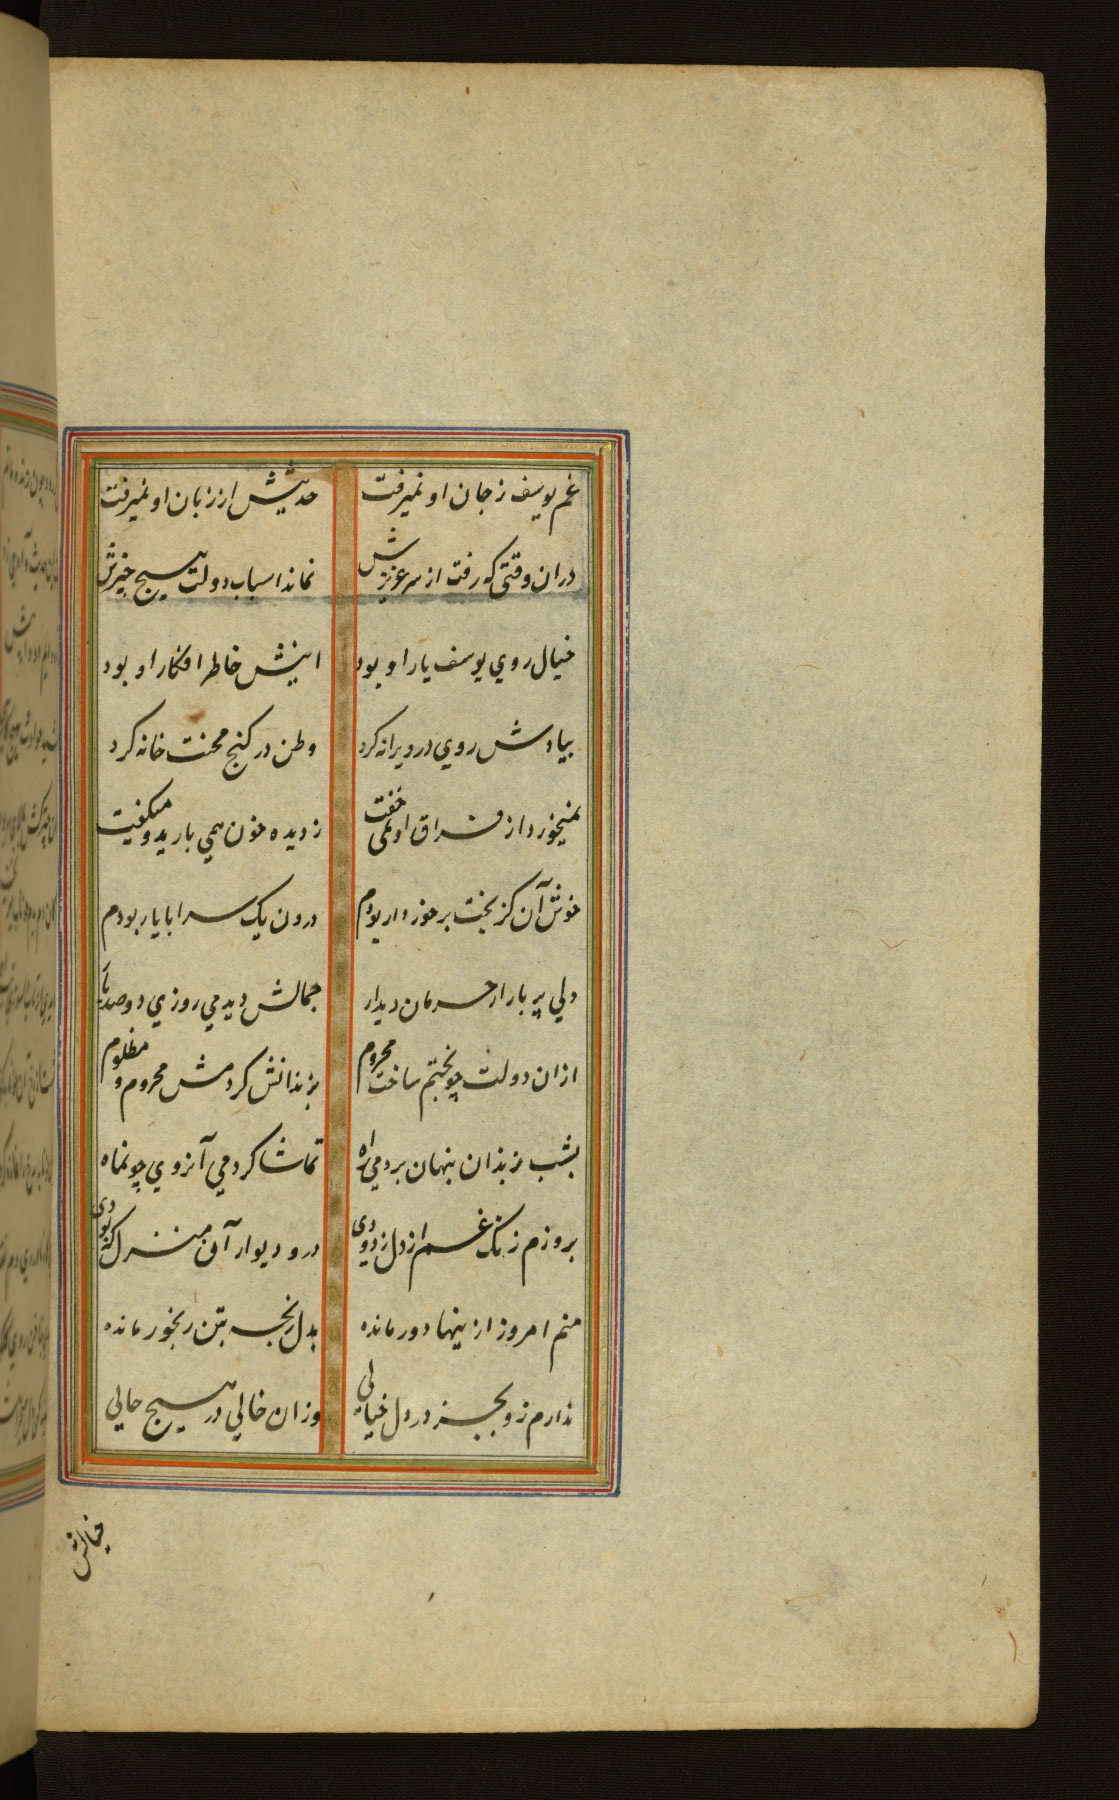 غم یوسف ز جان او نمیرفت
حدیثش از زبان او نمیرفت
دران وقتی که رفت از سر عزیزش
نماند اسباب دولت هیچ چیزش
خیال روي یوسف یار او بود
انیسش خاطر افکار او بود
بیادش روي در ویرانه کرد
وطن در کنج محنت خانه کرد
نمیخورد از فراق او نمی خفت
ز دیده خون همي بارید و میکفت
خوش آن کز بخت برخوردار بودم
درون یک سرا با یار بودم
دلي پر بار از حرمان دیدار
جمالش دیدمي روزي دو صد بار
ازان دولت چو بختم ساخت محروم
بزندانش کردمش محروم و مظلوم
بشب بزندان پنهان بردمي راه
تماشا کردمي آنروي چونماه
بروزم زنک غم از دل زدودی
در و دیوار آن منزل که بودی
منم امروز ازینها دور مانده
بدل رنجه بتن رنجور مانده
ندارم زو بجز در دل خیالی
وزان خالي در هیچ حالي
خیالش